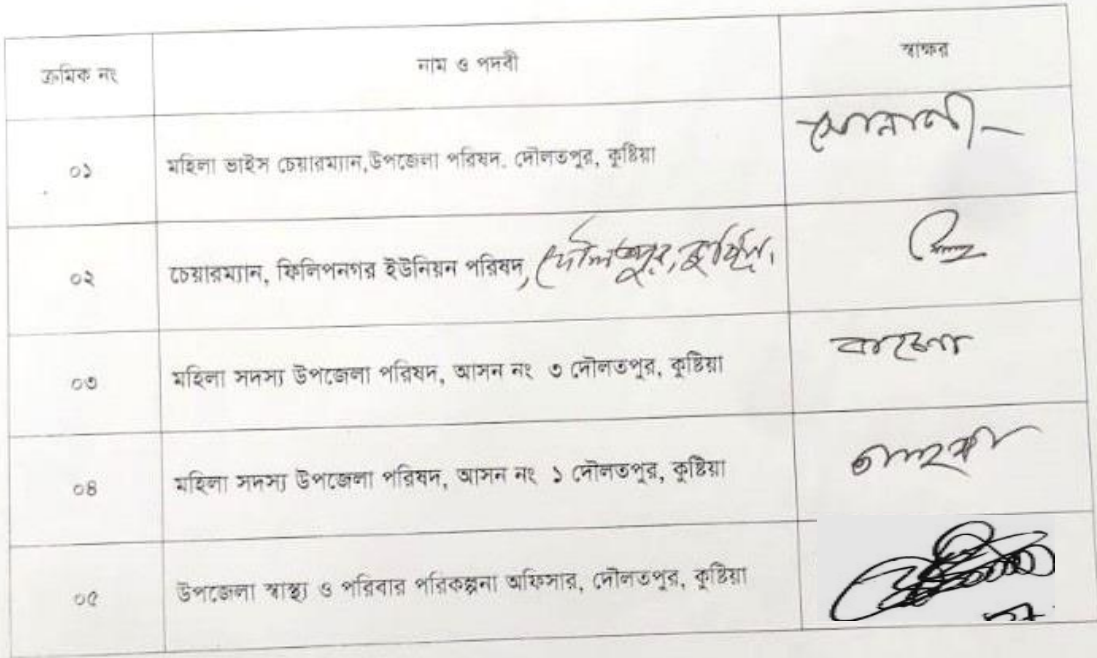 ক্রমিক নং
নাম ও পদবী
স্বাক্ষর
০১
মহিলা ভাইস চেয়ারম্যান,উপজেলা পরিষদ, দৌলতপুর, কুষ্টিয়া
০২
চেয়ারম্যান, ফিলিপনগর ইউনিয়ন পরিষদ, দৌলতপুর, কুষ্টিয়া।
০৩
মহিলা সদস্য উপজেলা পরিষদ, আসন নং ৩ দৌলতপুর, কুষ্টিয়া
০৪
মহিলা সদস্য উপজেলা পরিষদ, আসন নং ১ দৌলতপুর, কুষ্টিয়া
০৫
উপজেলা স্বাস্থ্য ও পরিবার পরিকল্পনা অফিসার, দৌলতপুর, কুষ্টিয়া